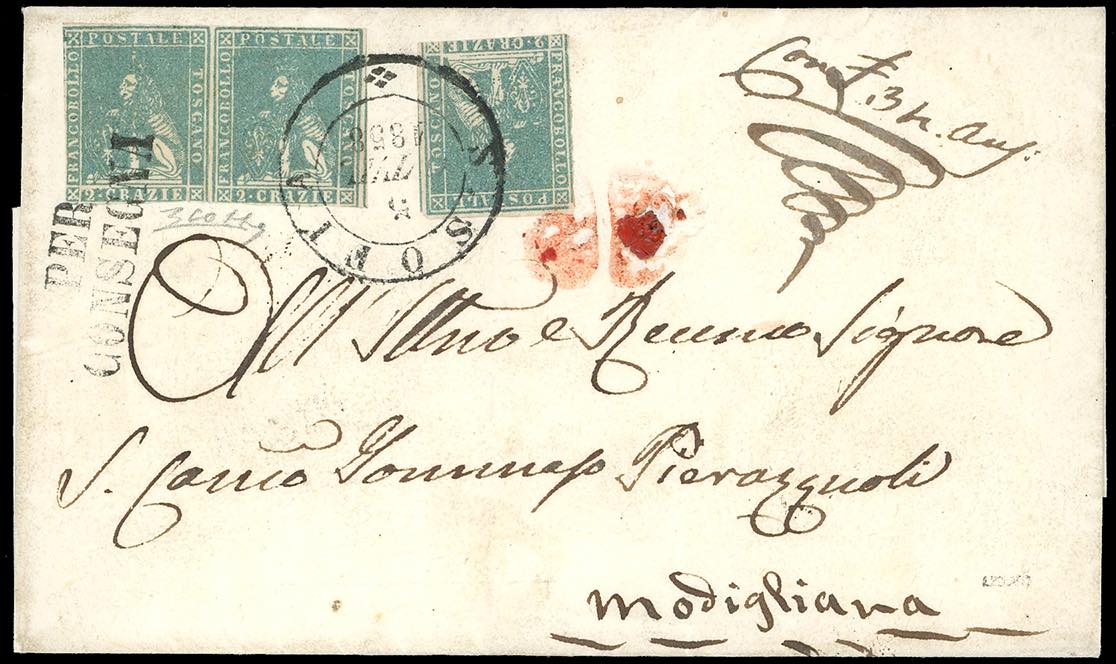 POSTALE
FRANCOBOLLO
TOSCANO
2·CRAZIE
POSTALE
FRANCOBOLLO
TOSCANO
2·CRAZIE
POSTALE
FRANCOBOLLO
TOSCANO
2·CRAZIE
S. SOFIA
5
1858
PER
CONSEGNA
All' Illmo e Revmo Signore
S. Canco Tommaso Pierazzuoli
Modigliana